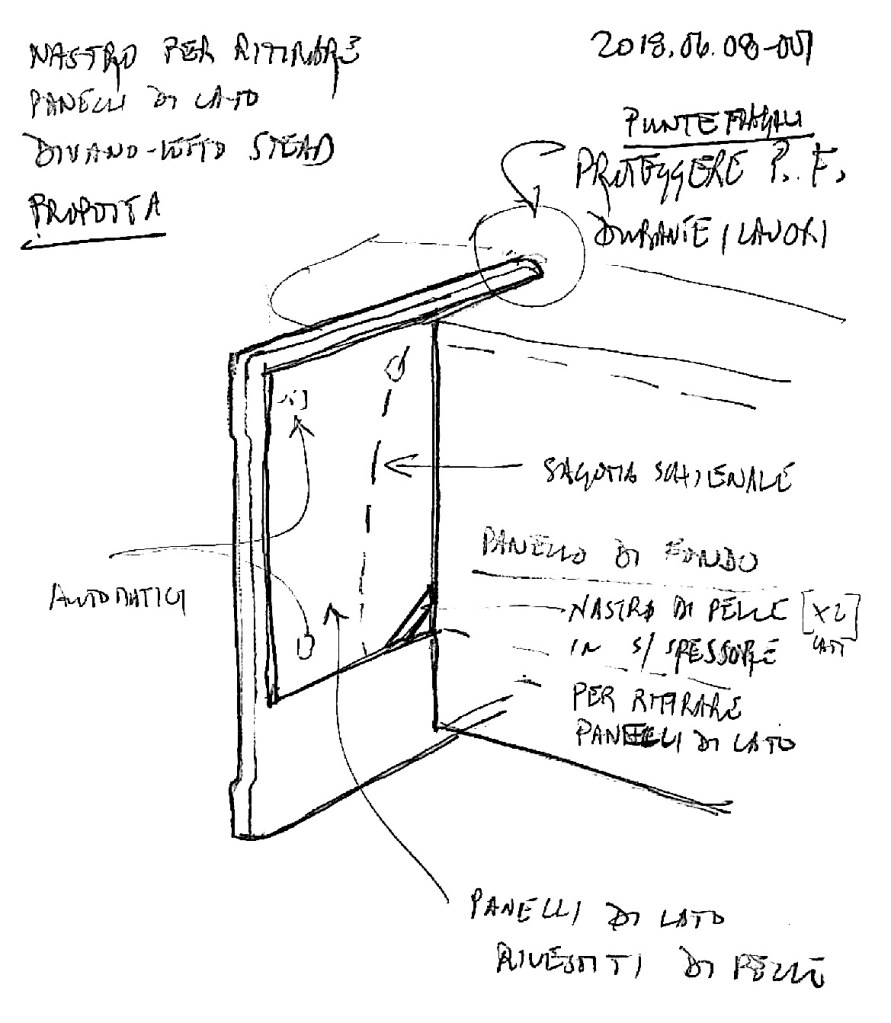 NASTRO PER RITIRARE
PANELLI DI LATO
DIVANO-LETTO STEAD
PROPOSTA
2018.06.08-001
PUNTE FRAGILI
PROTEGGERE P. F.
DURANTE I LAVORI
SAGOMA SCHIENALE
PANELLO DI FONDO
AUTOMATICI
NASTRO DI PELLE [X2]
LATI
IN S/SPESSORE
PER RITIRARE
PANELLI DI LATO
PANELLI DI LATO
RIVESTITI DI PELLE